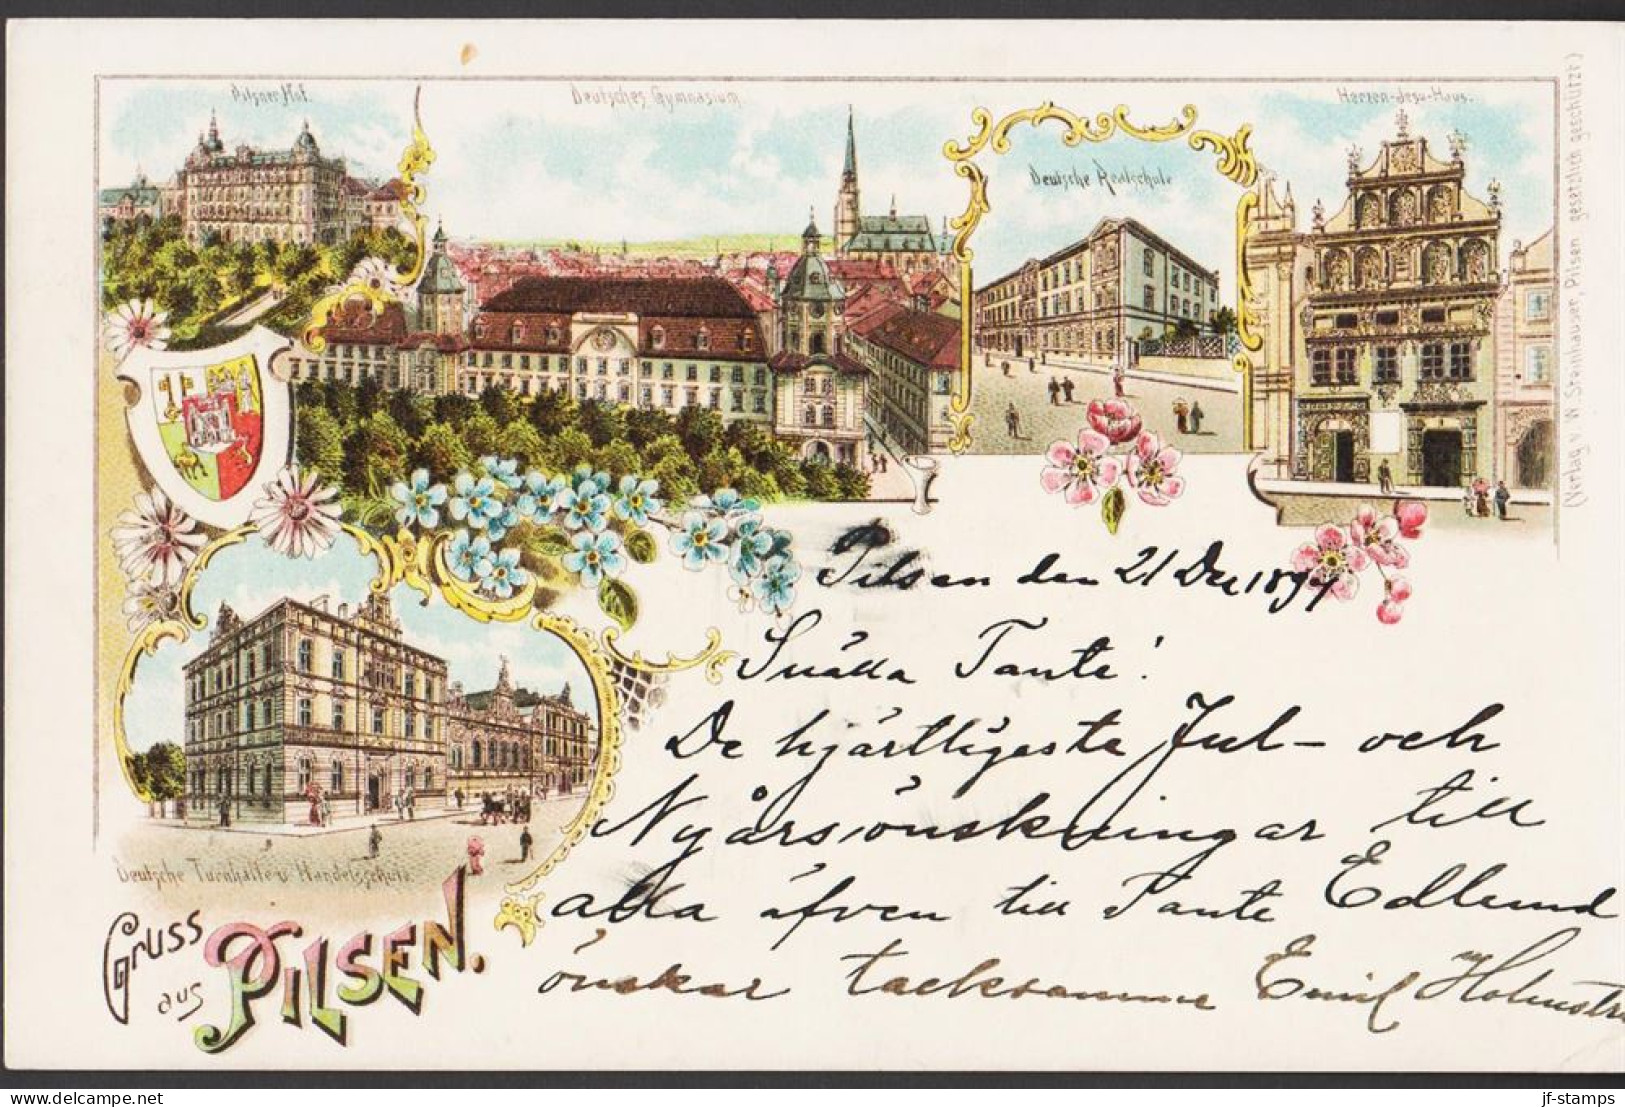 Pilsner Hof.
Deutsches Gymnasium
Deutsche Realschule
Herzen-Jesu-Haus.
(Verlag v. W. Steinhauser, Pilsen gesetzlich geschützt.)
Deutsche Turnhalle u Handelsschule.
Gruss
aus
PILSEN.
Pilsen den 21 Dec 1897
Snälla Tante!
De hjärtligaste Jul- och
Nyårsönskningar till
alla äfven till Tante Edlund
önskar tacksamme Emil Holmstr
delcampe.net
jf-stamps